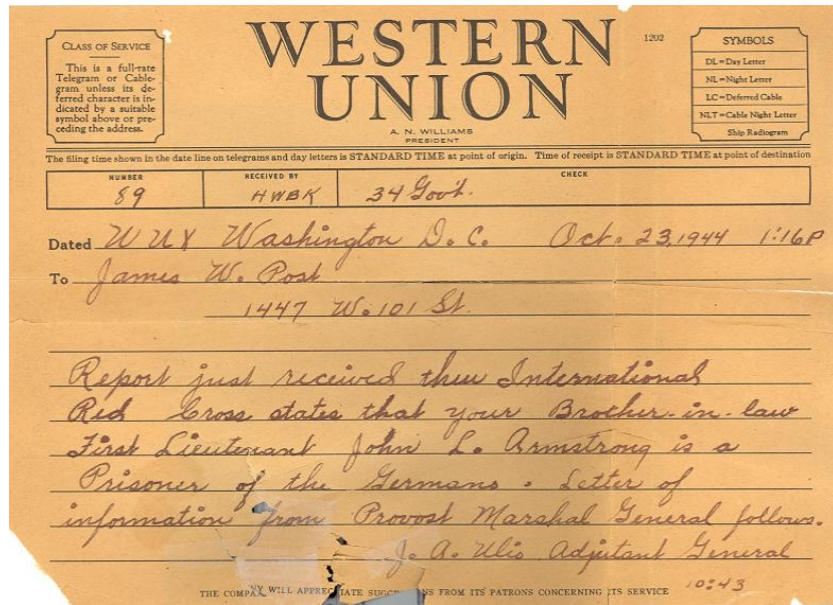 CLASS OF SERVICE
This is a full-rate
Telegram or Cable-
gram unless its de-
ferred character is in-
dicated by a suitable
symbol above or pre-
ceding the address.
WESTERN
UNION
A. N. WILLIAMS
PRESIDENT
1202
SYMBOLS
DL=Day Letter
NL=Night Letter
LC=Deferred Cable
NLT=Cable Night Letter
Ship Radiogram
The filing time shown in the date line on telegrams and day letters is STANDARD TIME at point of origin. Time of receipt is STANDARD TIME at point of destination
NUMBER RECEIVED BY CHECK
89 HWBK 34 Govt.
Dated WUX Washington D.C. Oct. 23, 1944 1:16P
To James W. Post
1447 W. 101 St.
Report just received thru International
Red Cross states that your Brother-in-law
First Lieutenant John L. Armstrong is a
Prisoner of the Germans. Letter of
information from Provost Marshal General follows.
J. A. Ulio Adjutant General
10:43
THE COMPA NY WILL APPRECIATE SUGG NS FROM ITS PATRONS CONCERNING ITS SERVICE